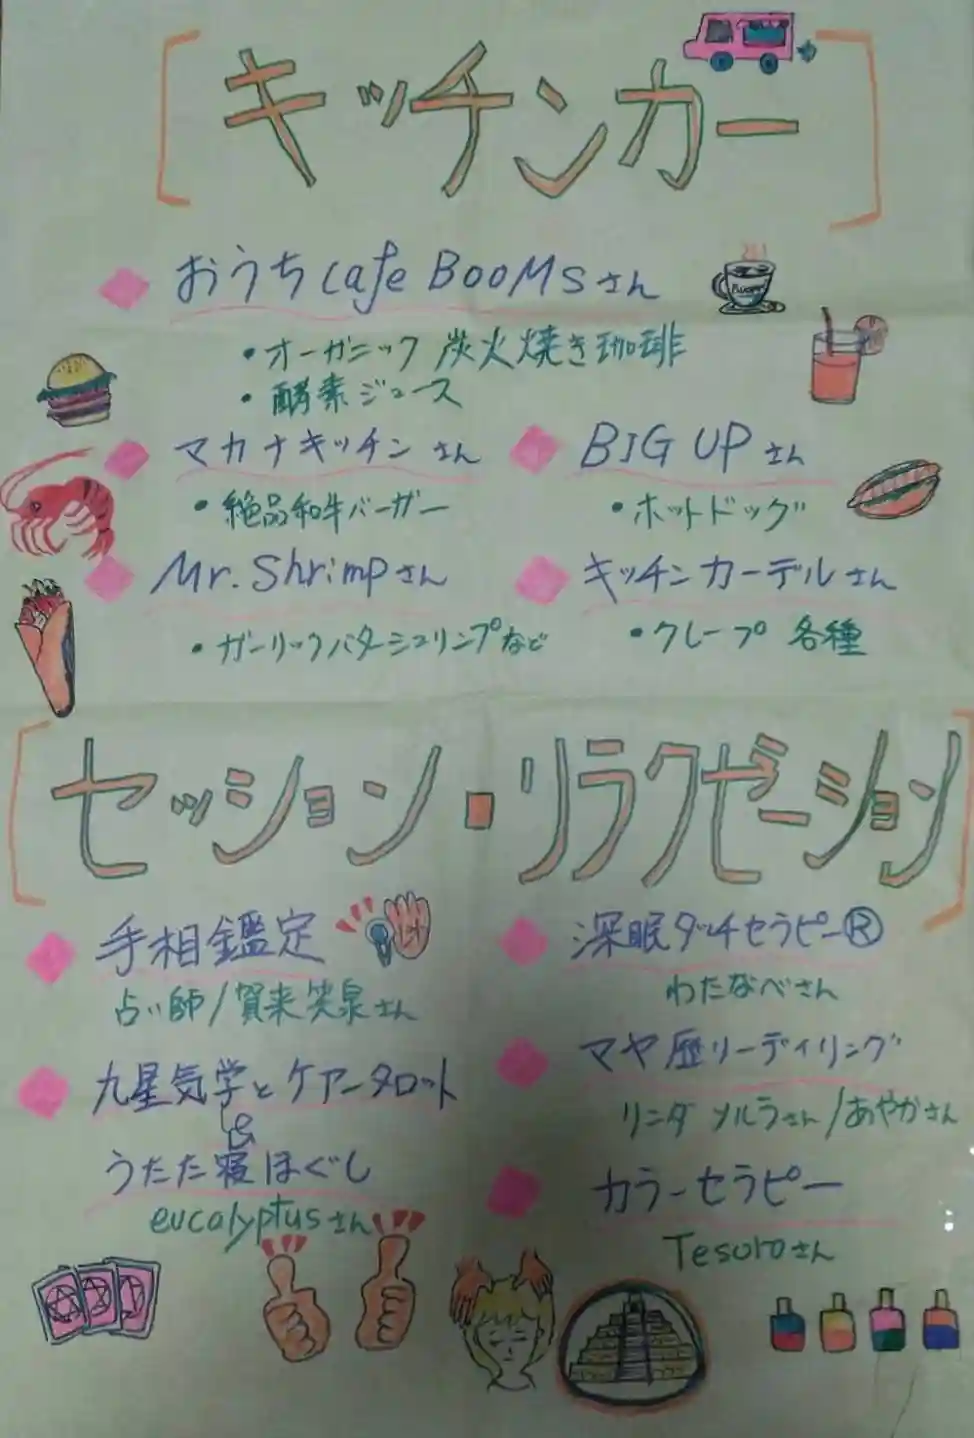 キッチンカー
おうちcafe BOOMSさん
・オーガニック 炭火焼き珈琲
・酵素ジュース
マカナキッチンさん
・絶品和牛バーガー
BIG UPさん
・ホットドッグ
Mr.Shrimpさん
・ガーリックバターシュリンプなど
キッチンカーデルさん
・クレープ 各種
セッション・リラクゼーション
手相鑑定
占い師/賀来笑泉さん
九星気学とケアータロット
&
うたた寝ほぐし
eucalyptusさん
深眠タッチセラピー®
わたなべさん
マヤ歴リーディング
リンダ ソルラさん/あやかさん
カラーセラピー
Tesoroさん